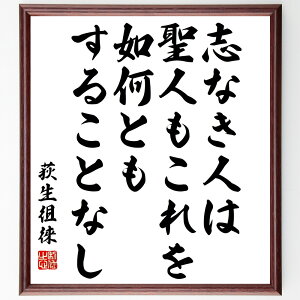 志なき人は
聖人もこれを
如何とも
することなし
荻生徂徠